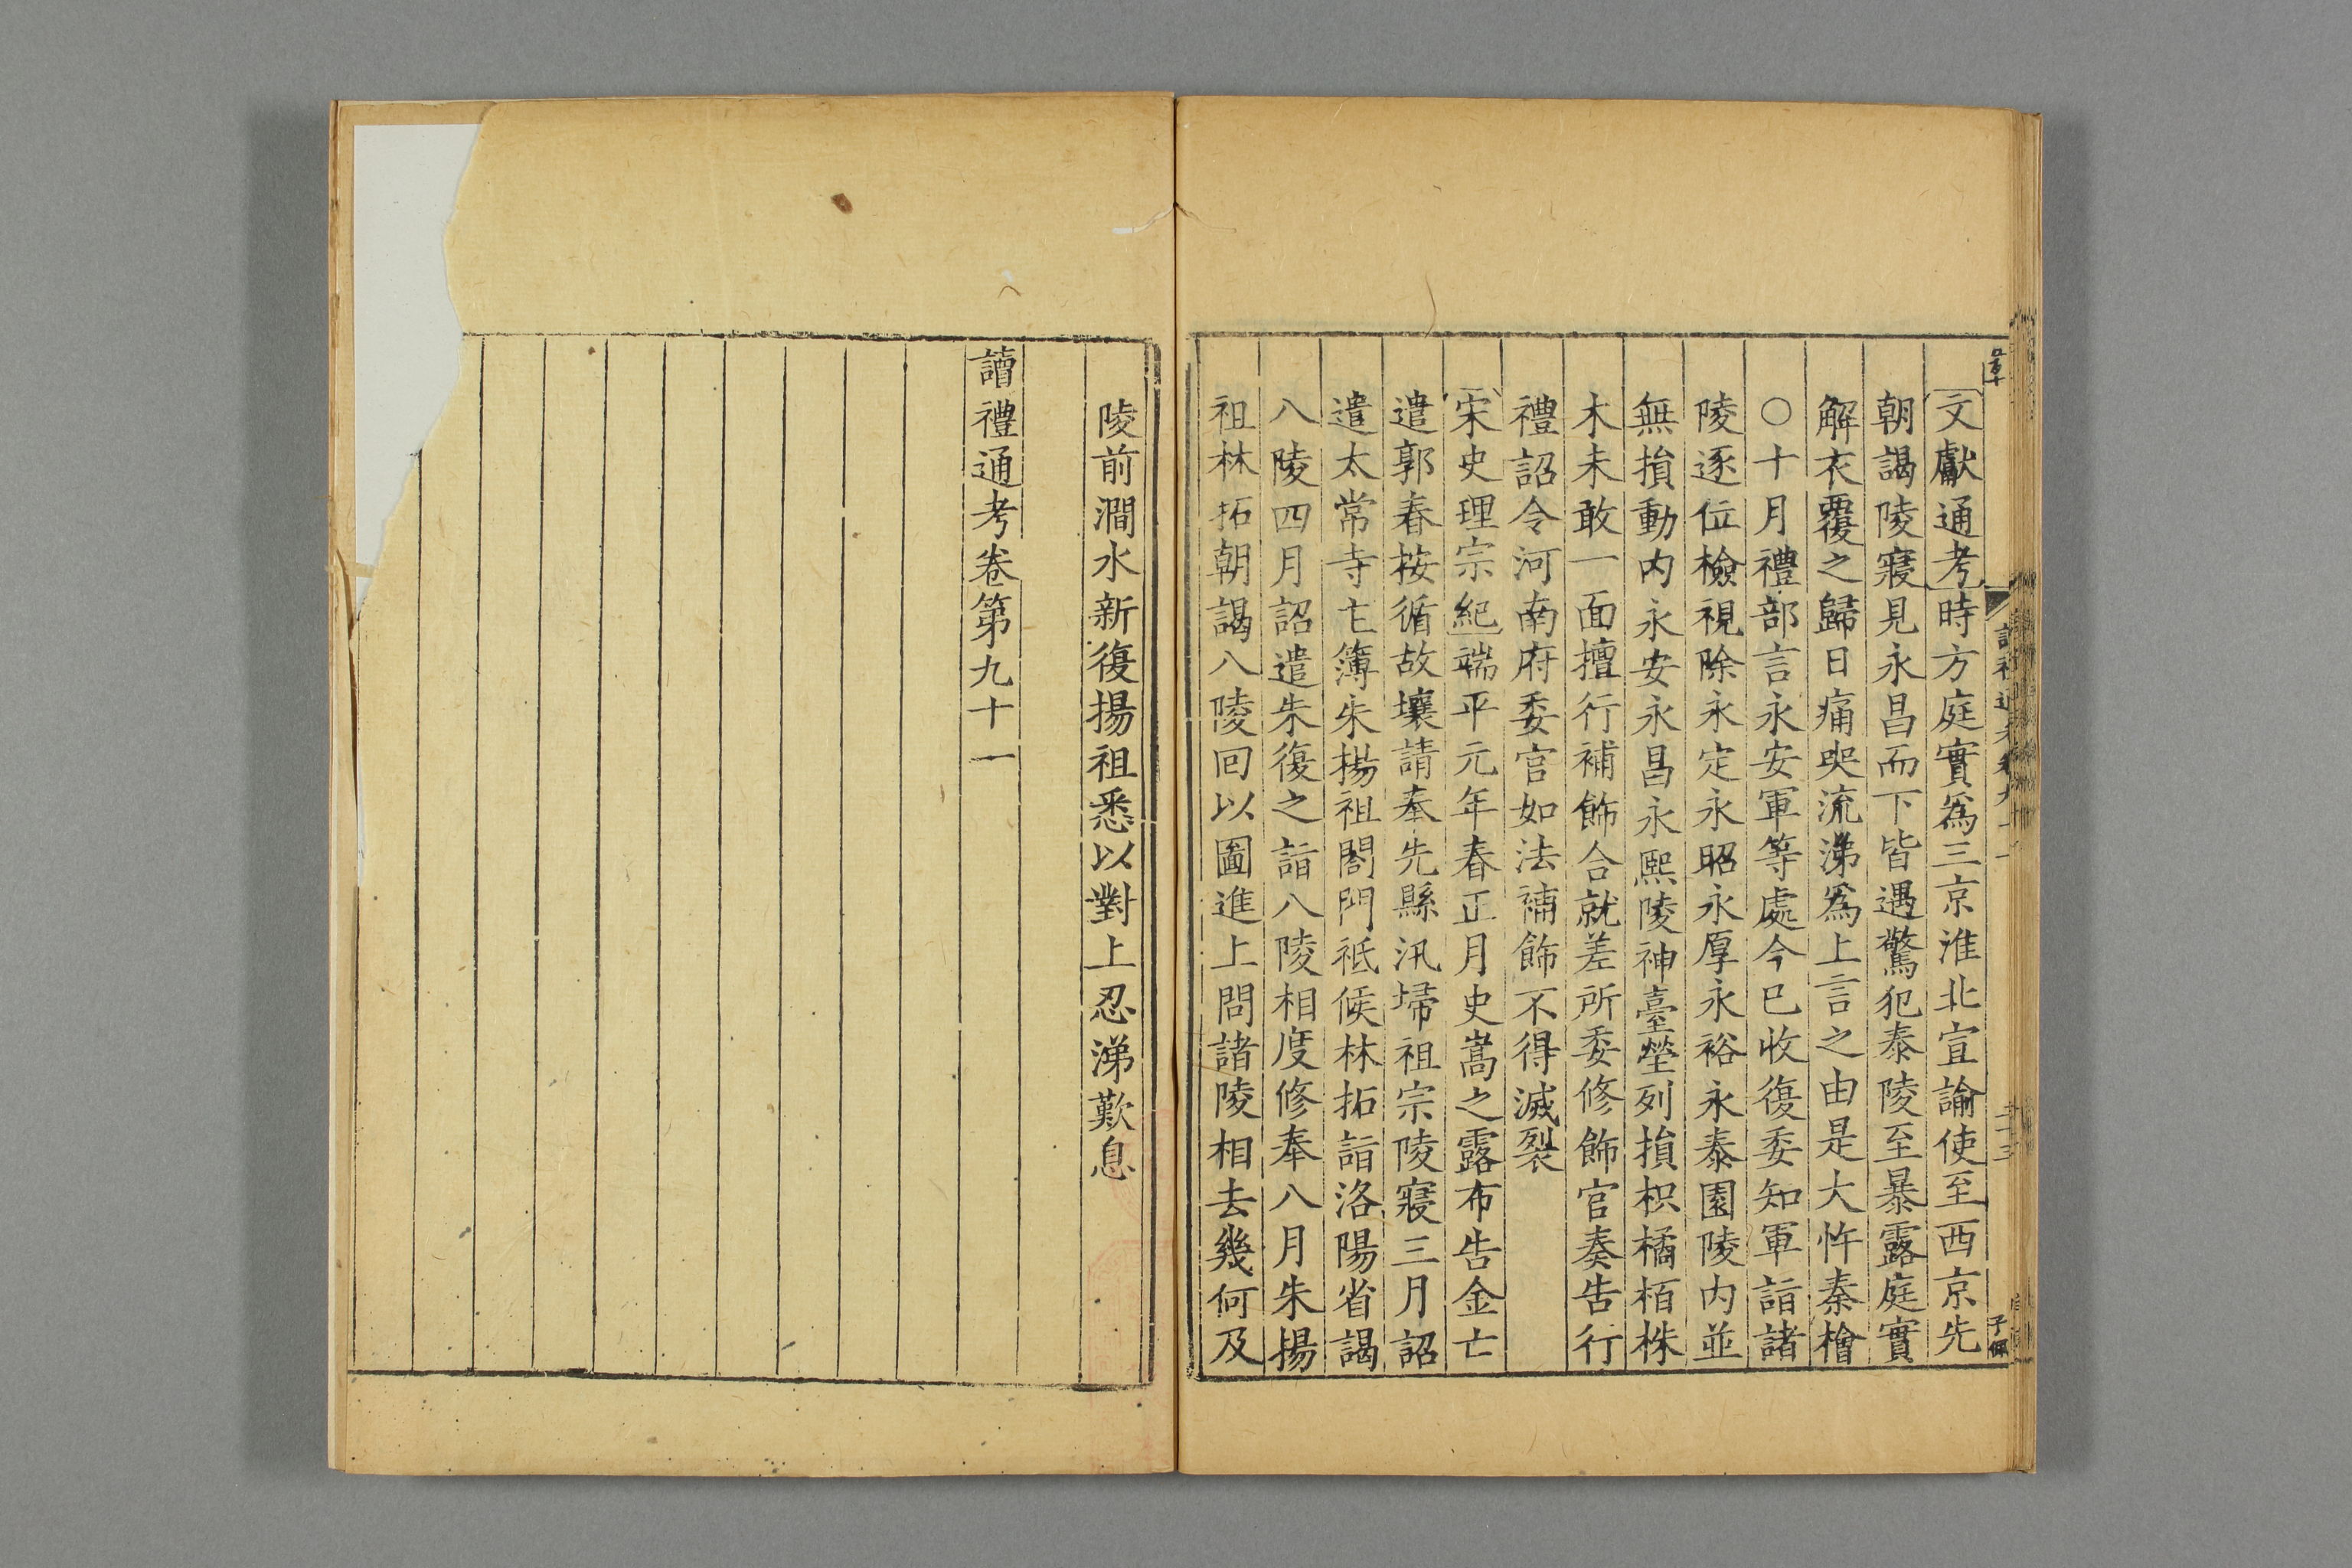 文獻通考時方庭實爲三京淮北宣諭使至西京先
朝謁陵寢見永昌而下皆遇驚犯泰陵至暴露庭實
解衣覆之歸日痛哭流涕爲上言之由是大忤秦檜
○十月禮部言永安軍等處今已收復委知軍詣諸
陵逐位檢視除永定永昭永厚永裕永泰園陵內並
無損動內永安永昌永熙陵神臺塋列損枳橘栢株
木未敢一面擅行補飾合就差所委修飾官奏告行
禮詔令河南府委官如法補飾不得滅裂
宋史理宗紀端平元年春正月史嵩之露布告金亡
遣郭春按循故壤請奉先縣汛埽祖宗陵寢三月詔
遣太常寺主簿朱楊祖閤門祗候林拓詣洛陽省謁
八陵四月詔遣朱復之詣八陵相度修奉八月朱揚
祖林拓朝謁八陵回以圖進上問諸陵相去幾何及
陵前澗水新復揚祖悉以對上忍涕歎息
讀禮通考卷第九十一